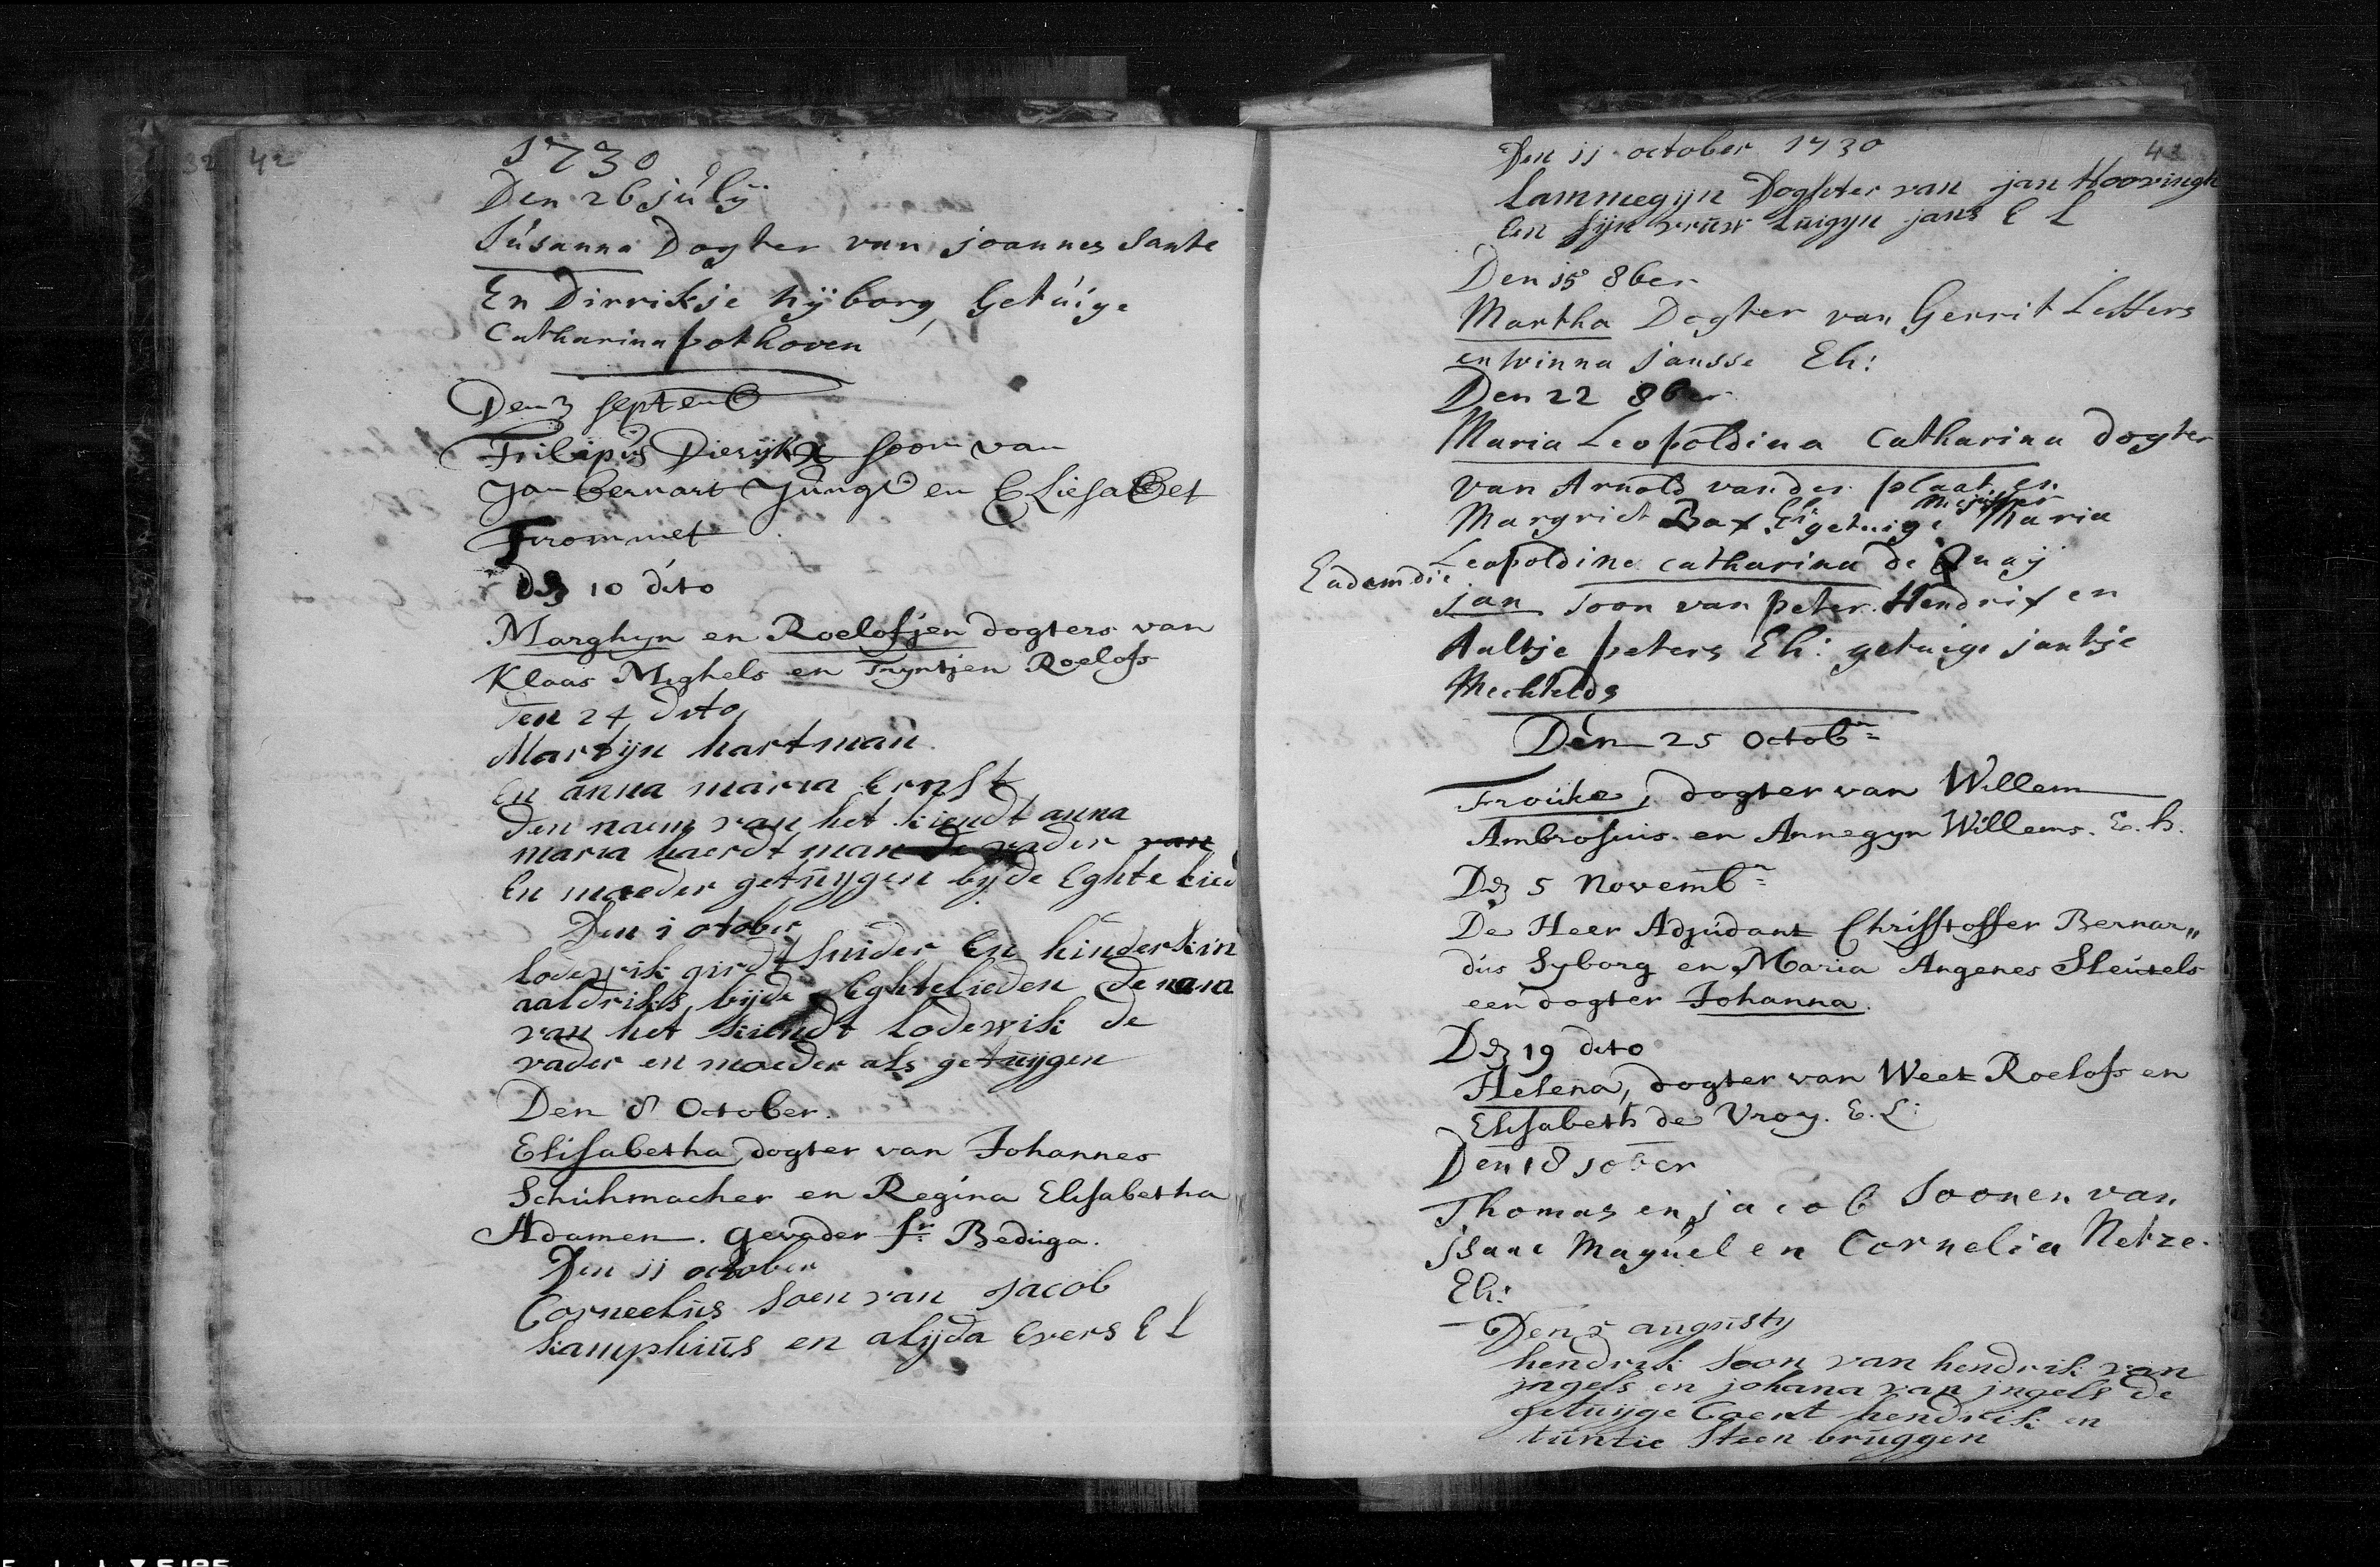 32 42
1730
Den 26 julij
Susanna Dogter van joannes Sante
En Dirrikje hijborg, Getuige
Catharina pothoven
Den 3 septemb
Frilipus Dierijkx soon van
Jan bernart Jungt en ELiesabet
Frommet
Dez 10 dito
Marghyn en Roelofjen dogters van
Klaas Mighels en Tryntjen Roelofs
Ten 24 dito
Martijn hartman
En anna maria Ernst
den naem van het kiendt anna
maria haerdt man de vader van
En moeder getuygen byde Eghte lied
Den 1 otober
lodewik girdt snider En hinderkin
aaldriks, bijde Eghtelieden de nam
van het kiendt lodewik de
vader en moeder als getuygen
Den 8 October.
Elisabetha, dogter van Johannes
Schuhmacher en Regina Elisabetha
Adamen. gevader sr. Bediga.
Den 11 october
Corneelus soen van Jacob
kamphius en alijda Evers E L
Den 11 october 1730 43
Lammegijn Doghter van jan Hoovingh
en sijn vruw Luigyn jans E L
Den 15 8ber
Martha Dogter van Gerrit Leffers
en winna Jansse Eh:
Den 22 8ber
Maria Leopoldina Catharina dogter
van Arnold vander plaat en
Margriet Bax Eh getuige Mejuffer Maria
Leopoldine catharina de Quaij
Eadem die jan soon van peter Hendrix en
Aaltje peters Eh: getuige jantje
Mechtelds
Den 25 Octobr
Frouke, dogter van Willem
Ambrosius en Annegyn Willems. E. h.
Dez 5 Novembr
De Heer Adjudant Christoffer Bernar„
dus Syborg en Maria Angenes Sleutels
een dogter Johanna.
Dez 19 dito
Helena, dogter van Weet Roelofs en
Elisabeth de Vroy. E. L:
Den 18 10ber
Thomas en jacob Soonen van
jsaac Mayuel en Cornelia Netze.
Eh:
Den 5 augusty
hendrik soon van hendrik van
jngels en johana van jngels de
getuyge Coert hendrik en
tuntie Steen bruggen
5185